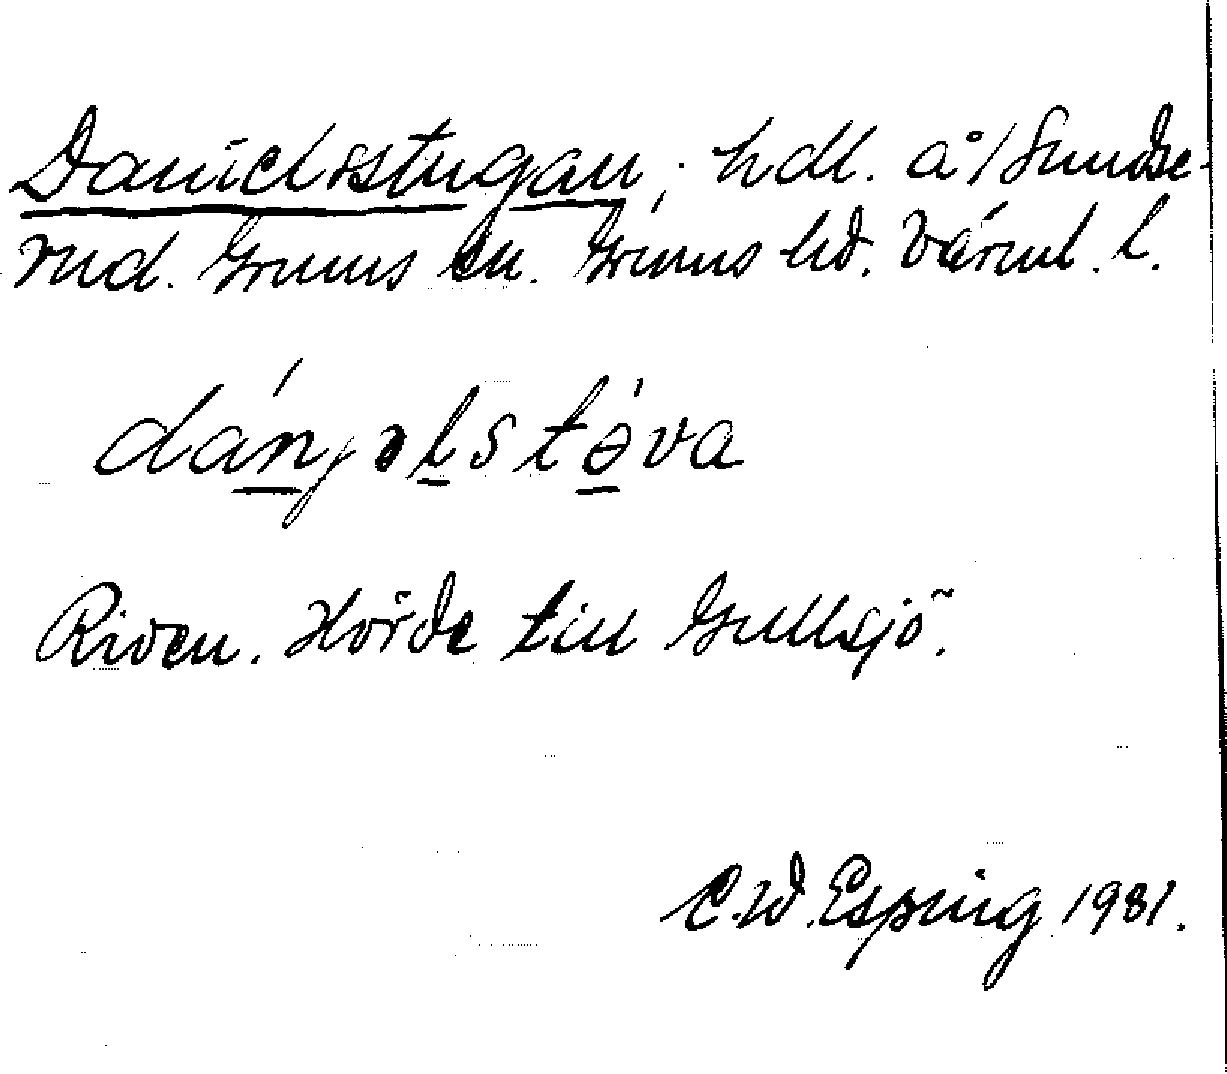 Danielsstugan, hdl. å/Sundse-
rud. Grums sn. Grums hd. Värml. l.
dánjəlstə́va
Riven. Hörde till Gullsjö.
C.W. Esping 1981.